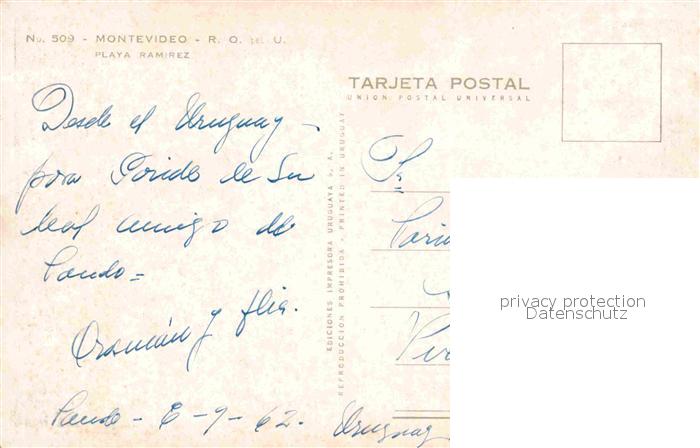 No. 509 - MONTEVIDEO - R. O. del U.
PLAYA RAMIREZ
TARJETA POSTAL
UNION POSTAL UNIVERSAL
Desde el Uruguay
para de su
leal amigo de
Pando =
y flia.
Pando - 6-9-62.
Uruguay
Sr
EDICIONES IMPRESORA URUGUAYA S. A.
REPRODUCCION PROHIBIDA - PRINTED IN URUGUAY
privacy protection
Datenschutz